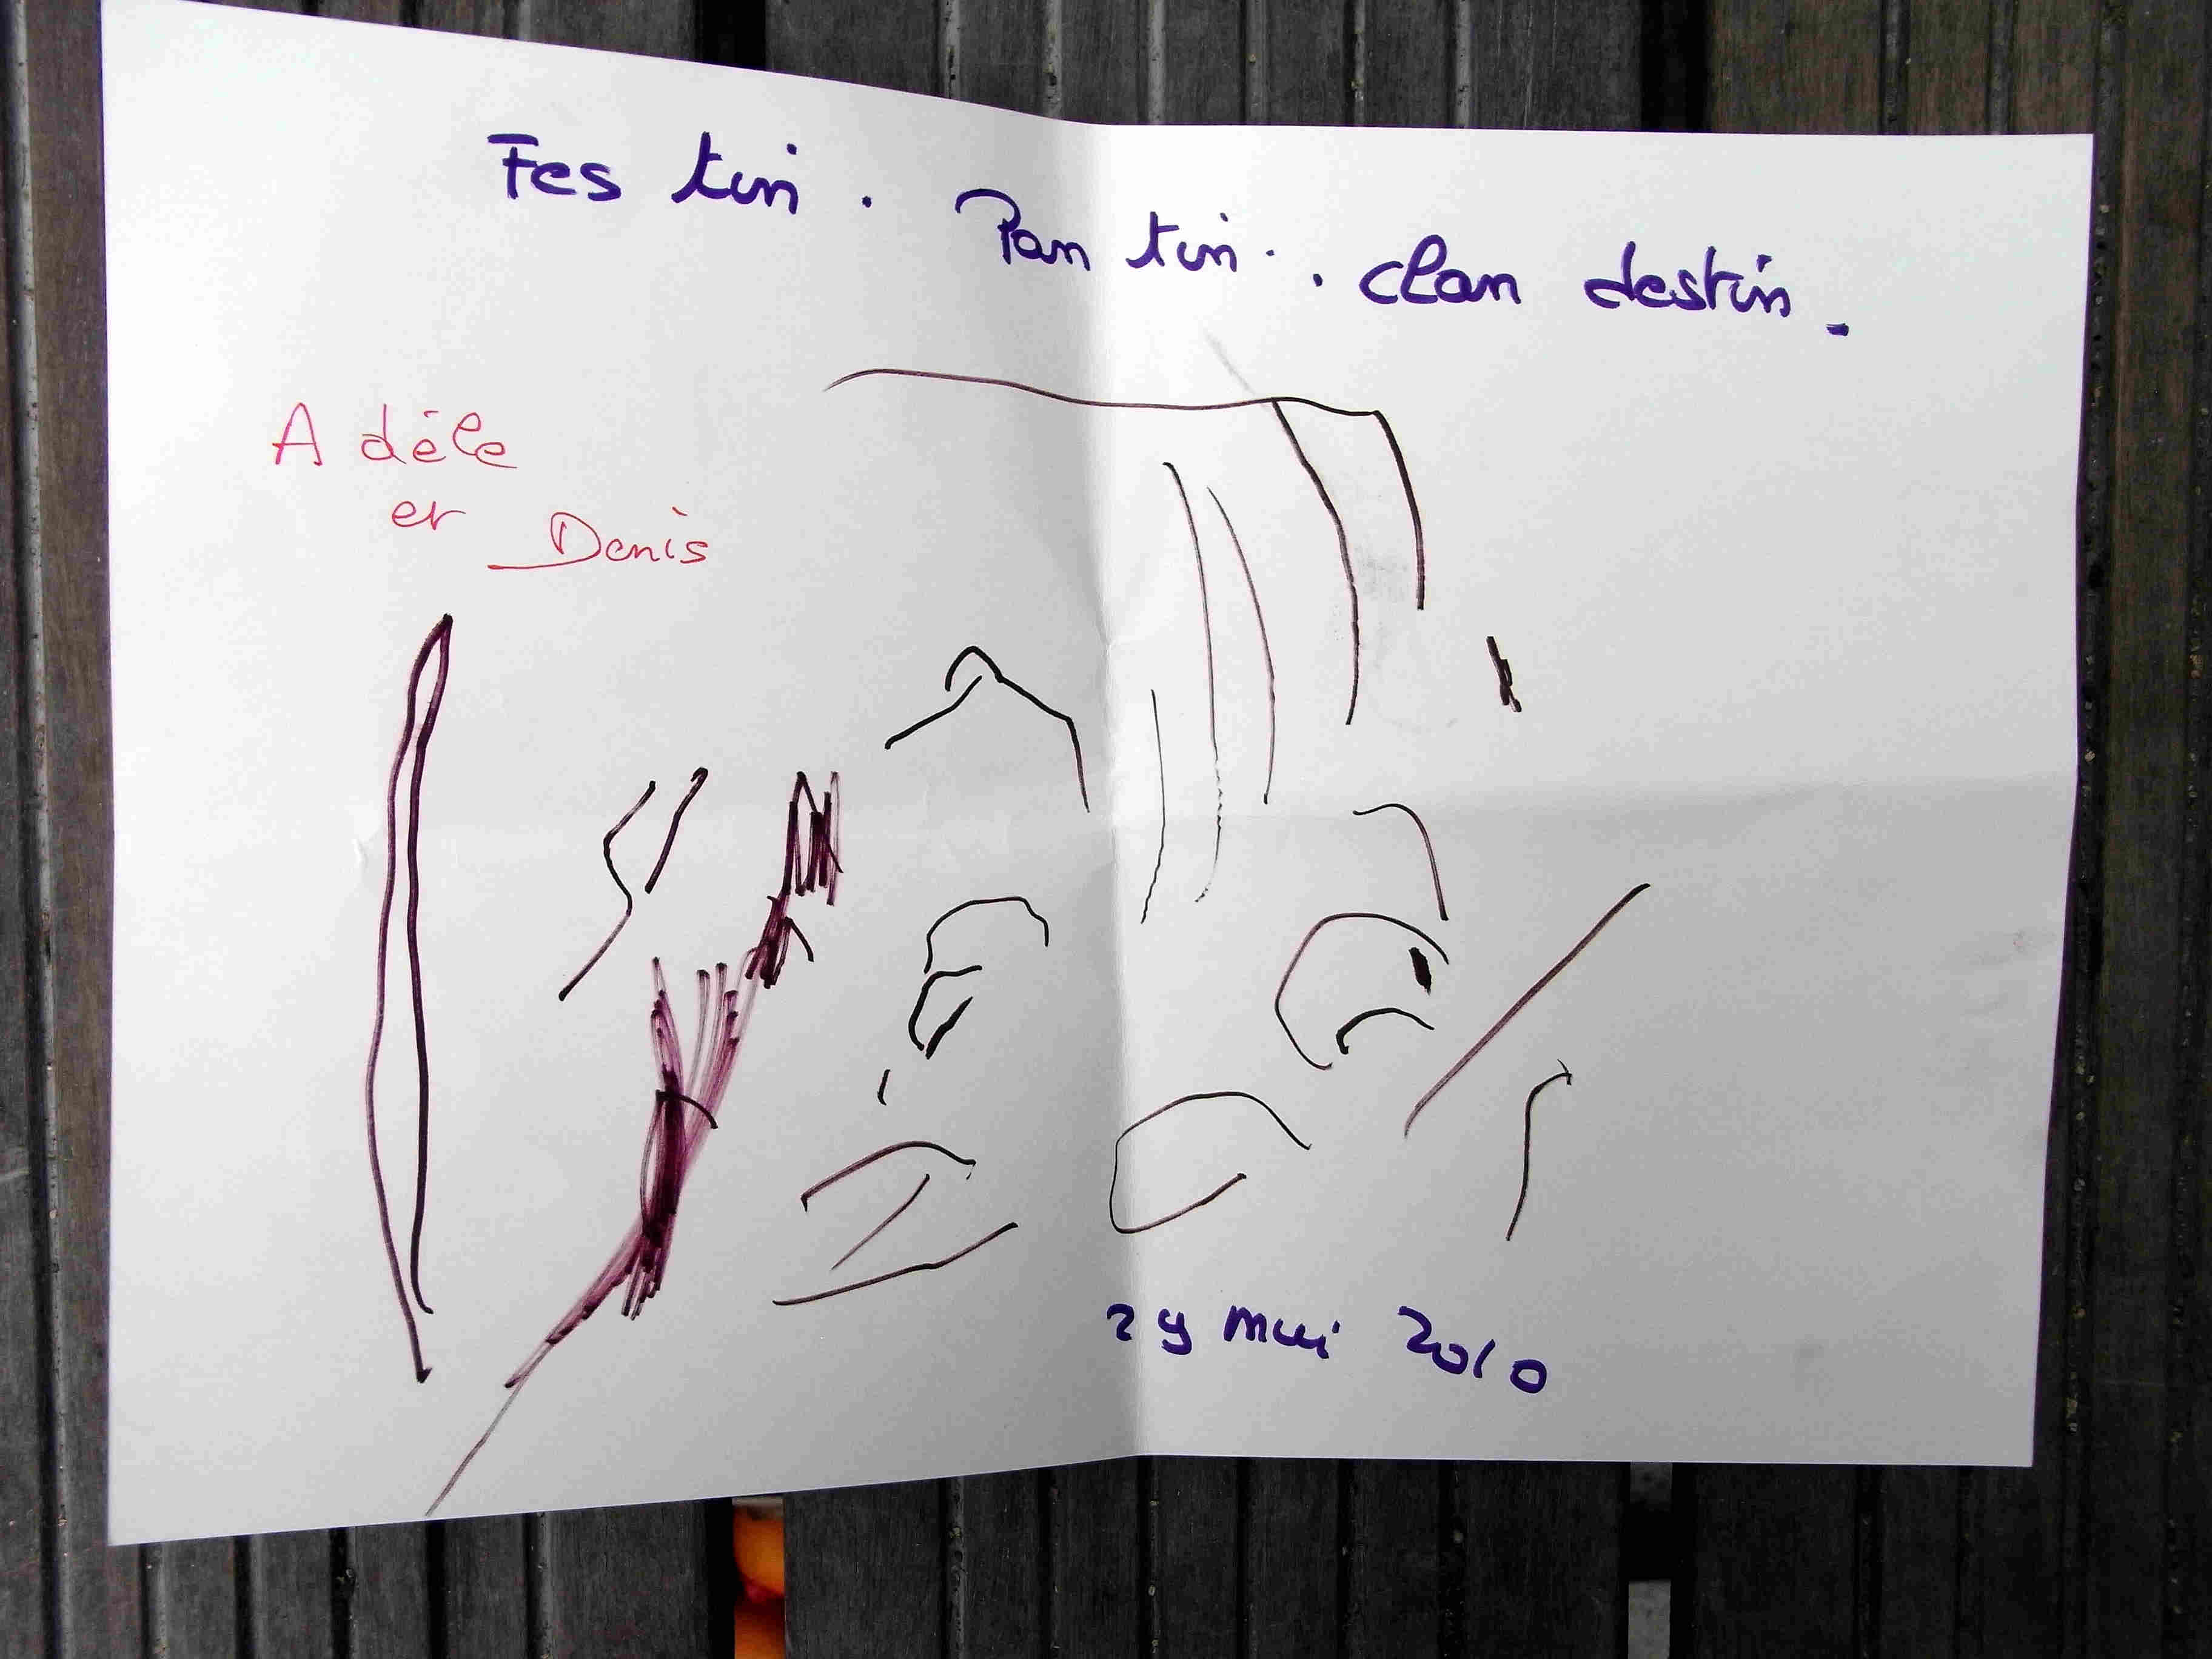 Fes tin . Pan tin . . clan destin .
A dèle
et Denis
29 mai 2010